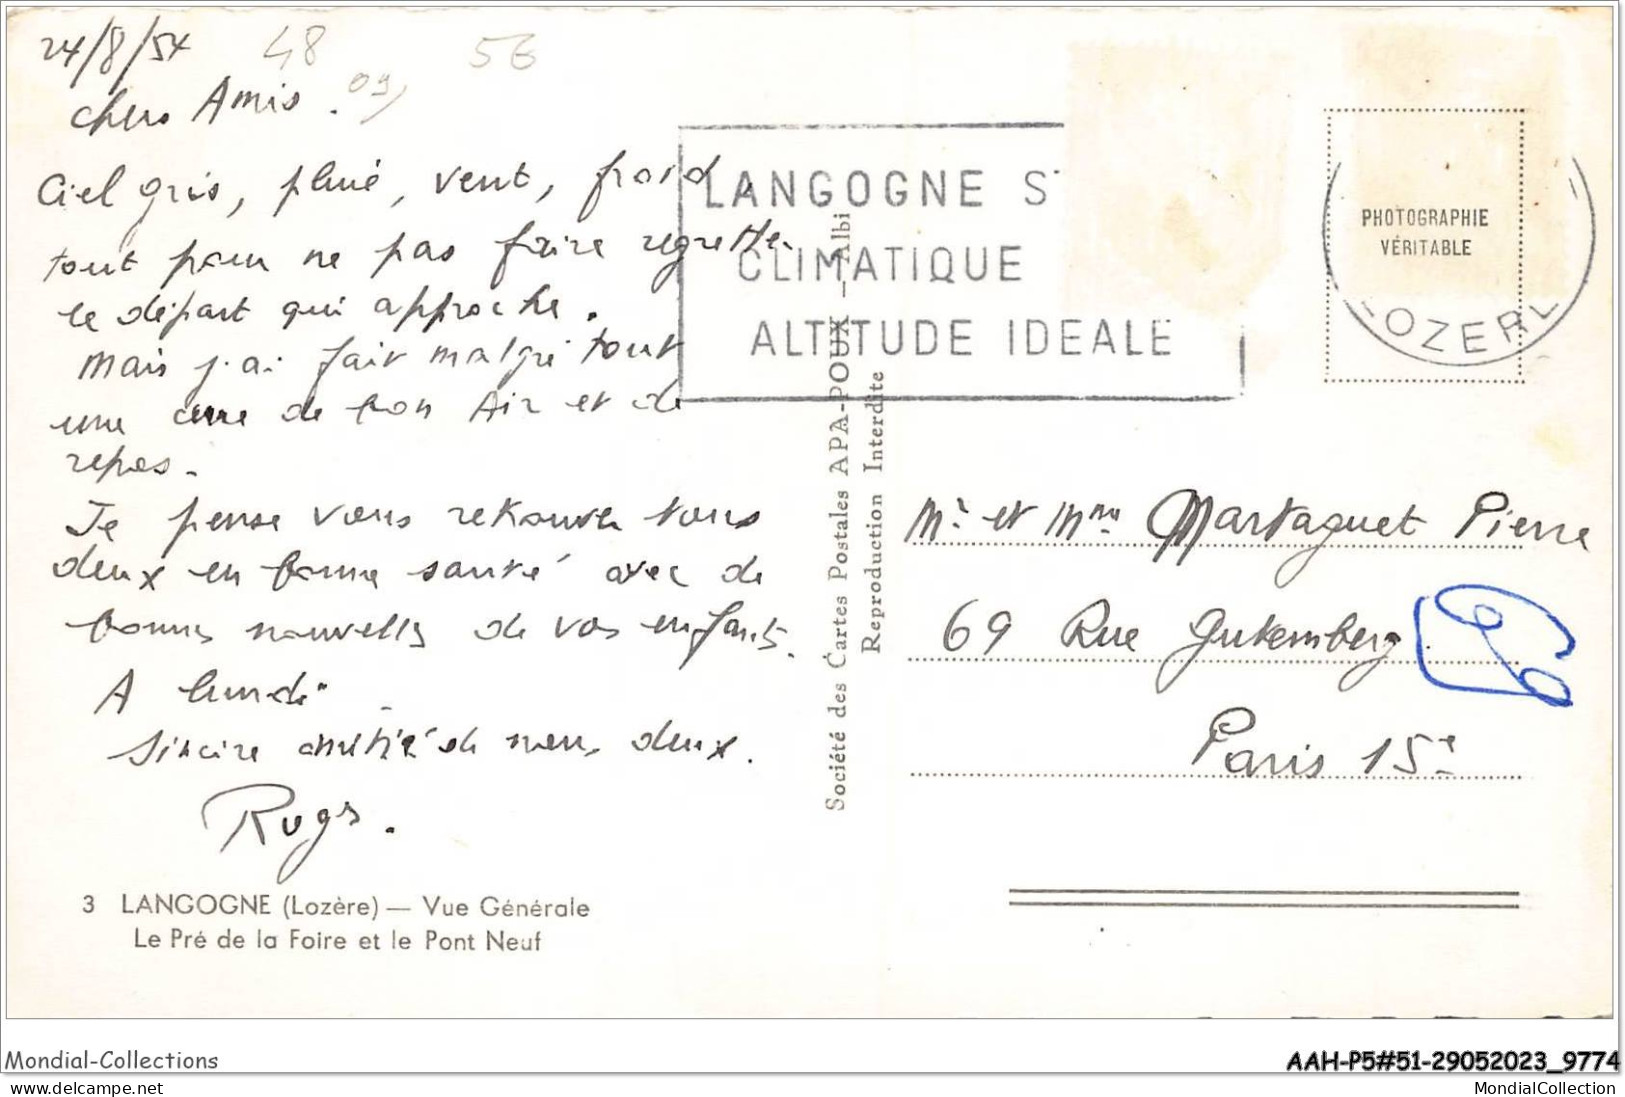 24/8/54
48
56
09
Chers Amis.
Ciel gris, pluie, vent, froid,
tout pour ne pas faire regretter
le départ qui approche.
Mais j'ai fait malgré tout
une cure de bon Air et de
repos.
Je pense vous retrouver tous
deux en bonne santé avec de
bonnes nouvelles de vos enfants.
A lundi
Sincère amitié de nous deux.
3 LANGOGNE (Lozère) — Vue Générale
Le Pré de la Foire et le Pont Neuf
Société des Cartes Postales APA-POUX — Albi
Reproduction Interdite
LANGOGNE ST
CLIMATIQUE
ALTITUDE IDEALE
PHOTOGRAPHIE
VÉRITABLE
LOZERE
Mr et Mme Martaguet Pierre
69 Rue Gutemberg.
Paris 15e
Mondial-Collections
AAH-P5#51-29052023_9774
www.delcampe.net
MondialCollection